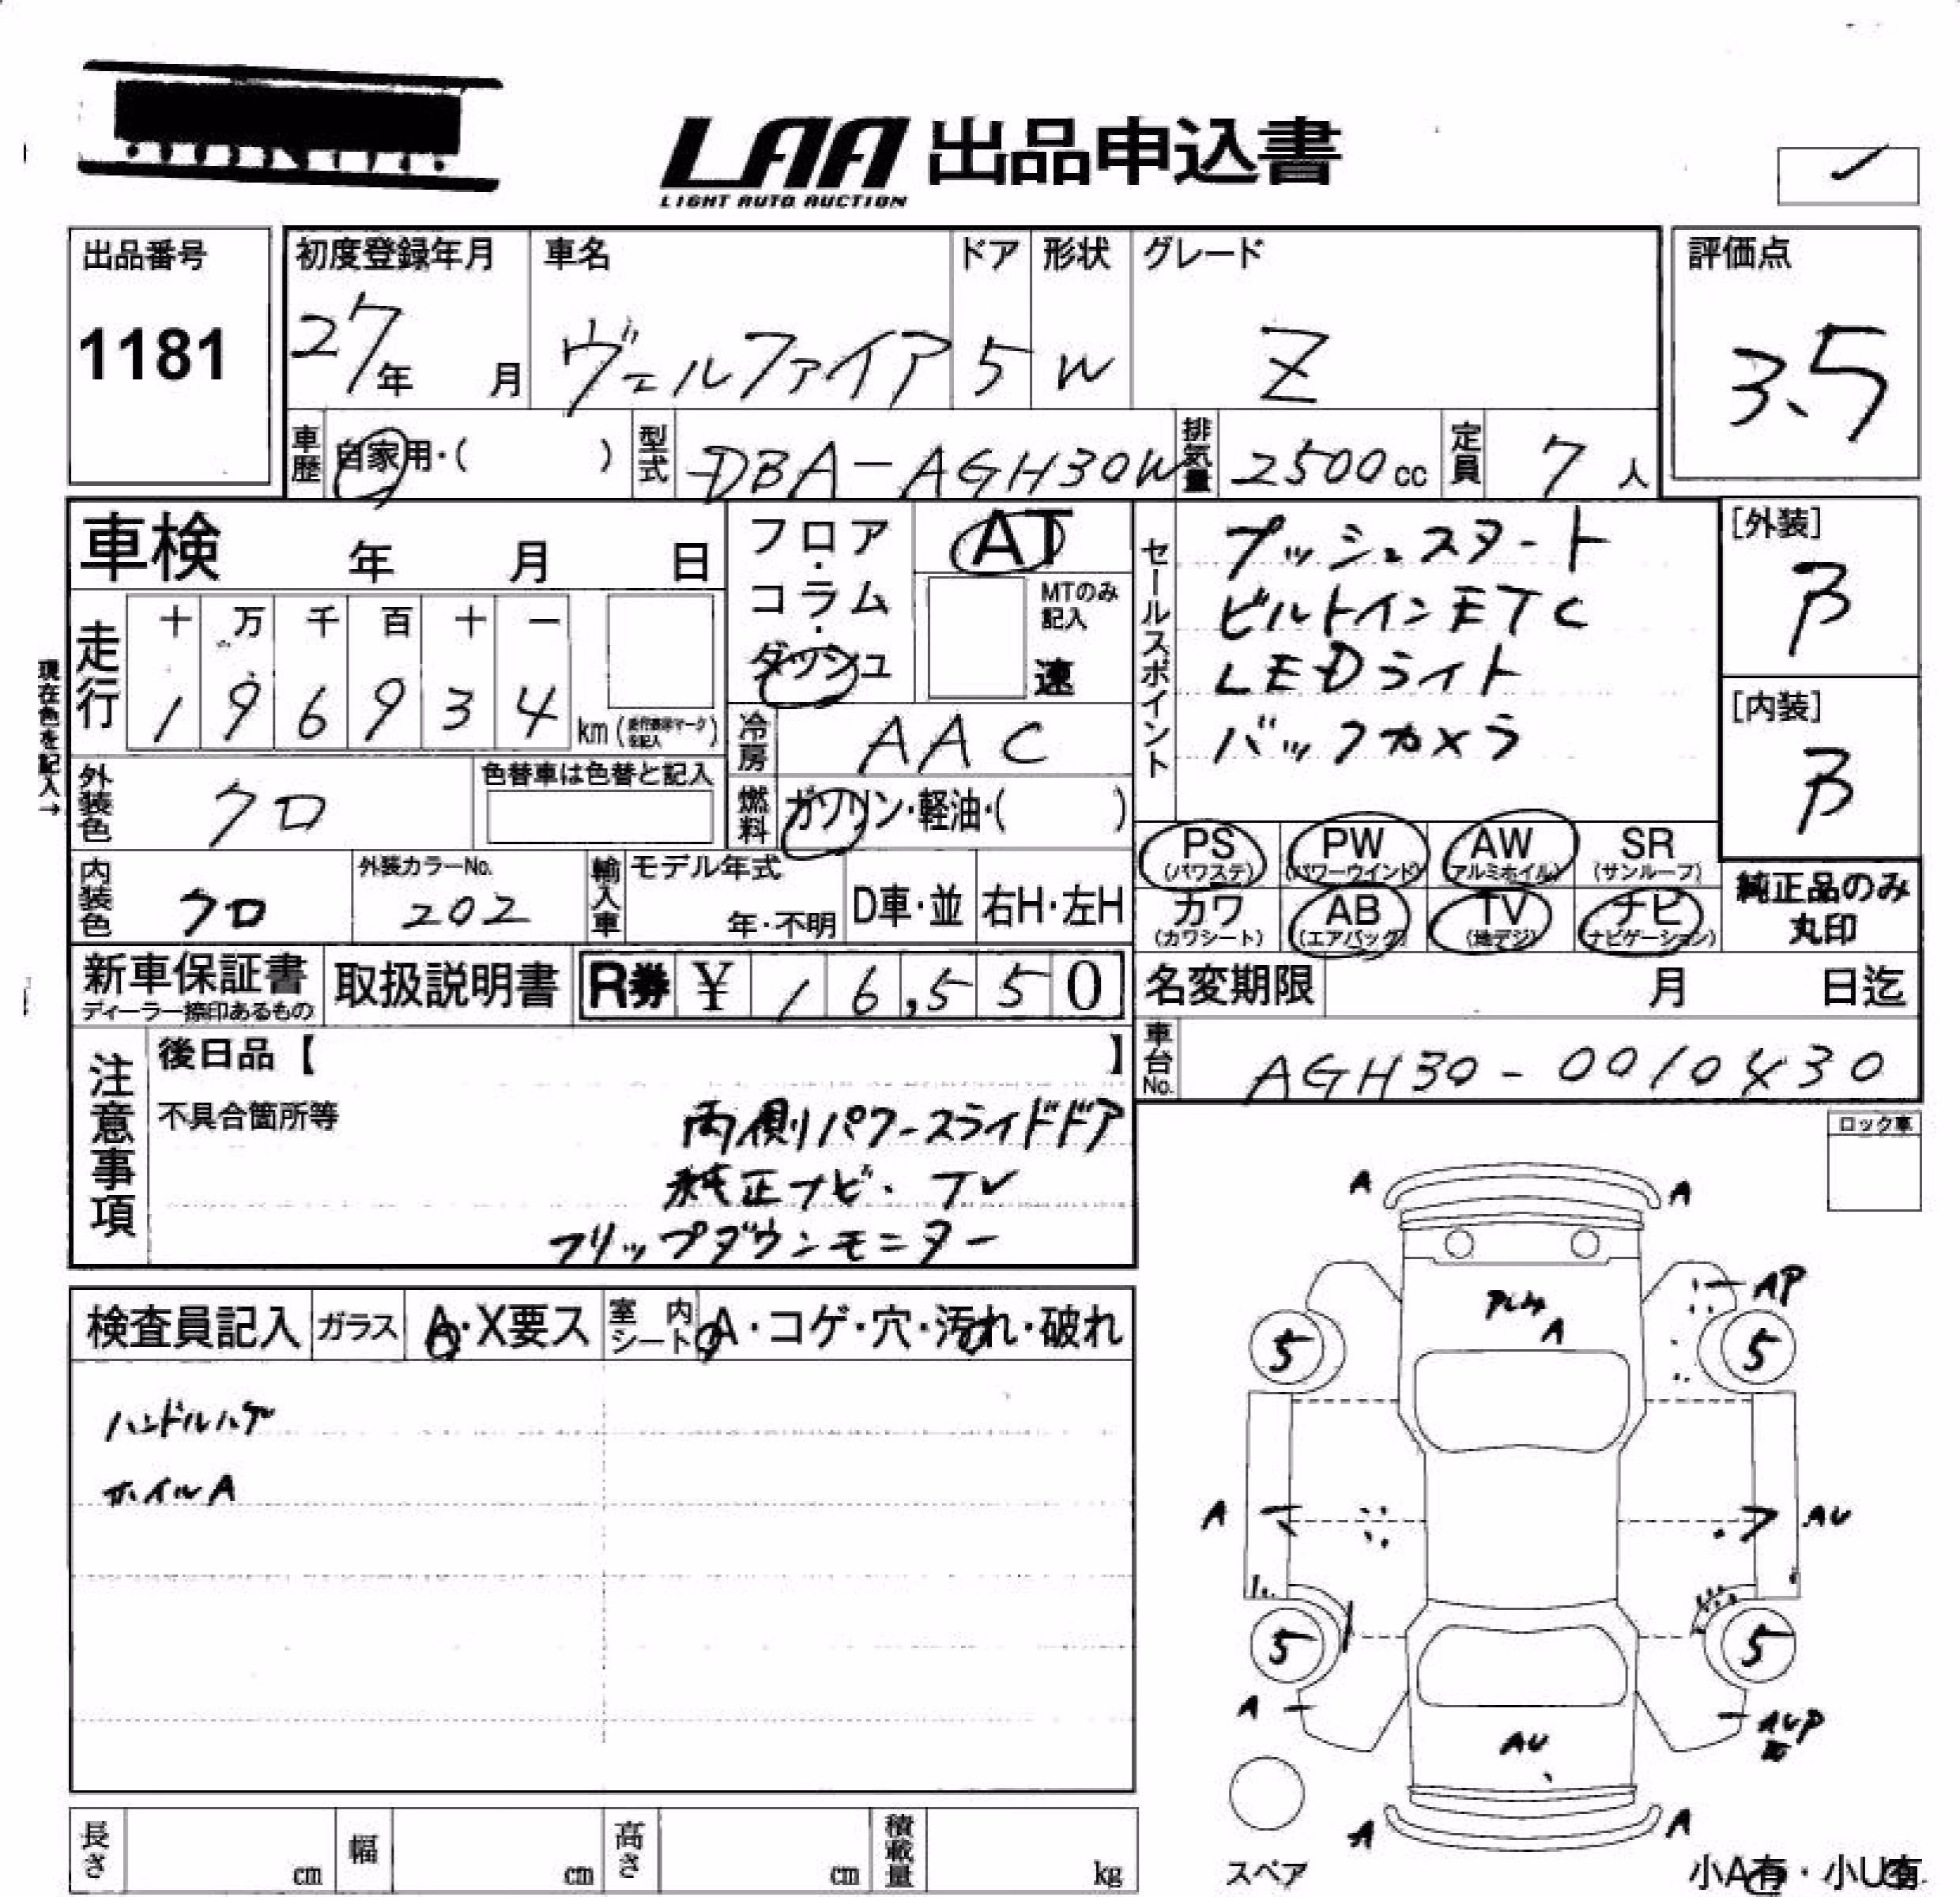 LAA 出品申込書
LIGHT AUTO AUCTION
出品番号
1181
初度登録年月
27年 月
車名
ヴェルファイア
ドア
5
形状
W
グレード
Z
評価点
3.5
車歴
自家用・( )
型式
DBA-AGH30W
排気量
2500cc
定員
7人
車検 年 月 日
フロア・コラム・ダッシュ
AT
MTのみ記入
速
セールスポイント
プッシュスタート
ビルトインETC
LEDライト
バックカメラ
[外装]
B
[内装]
B
現在色を記入→
走行
十 万 千 百 十 一
1 9 6 9 3 4 km
冷房
AAC
外装色
クロ
色替車は色替と記入
燃料
ガソリン・軽油・( )
PS
(パワステ)
PW
(パワーウインド)
AW
(アルミホイル)
SR
(サンルーフ)
カワ
(カワシート)
AB
(エアバック)
TV
(地デジ)
ナビ
(ナビゲーション)
純正品のみ
丸印
内装色
クロ
外装カラーNo.
202
輸入車
モデル年式
年・不明
D車・並
右H・左H
新車保証書
ディーラー捺印あるもの
取扱説明書
R券 ¥ 1 6,5 5 0
名変期限 月 日迄
車台No.
AGH30-0010430
注意事項
後日品【 】
不具合箇所等
両側パワースライドドア
純正ナビ・TV
フリップダウンモニター
ロック車
検査員記入
ガラス
A・X要ス
室内シート
A・コゲ・穴・汚れ・破れ
ハンドルハゲ
ホイルA
A A
AP
A
5 5
A AU
5 5
A AUP
AU
A A
スペア
小A有・小U有
長さ cm
幅 cm
高さ cm
積載量 kg